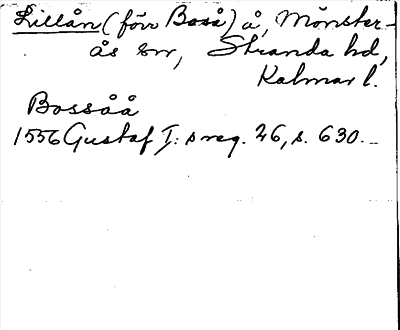 Lillån (förr Boså) å, Mönster-
ås sn, Stranda hd,
Kalmar l.
Bossåå
1556 Gustaf I:s reg. 26, s. 630.